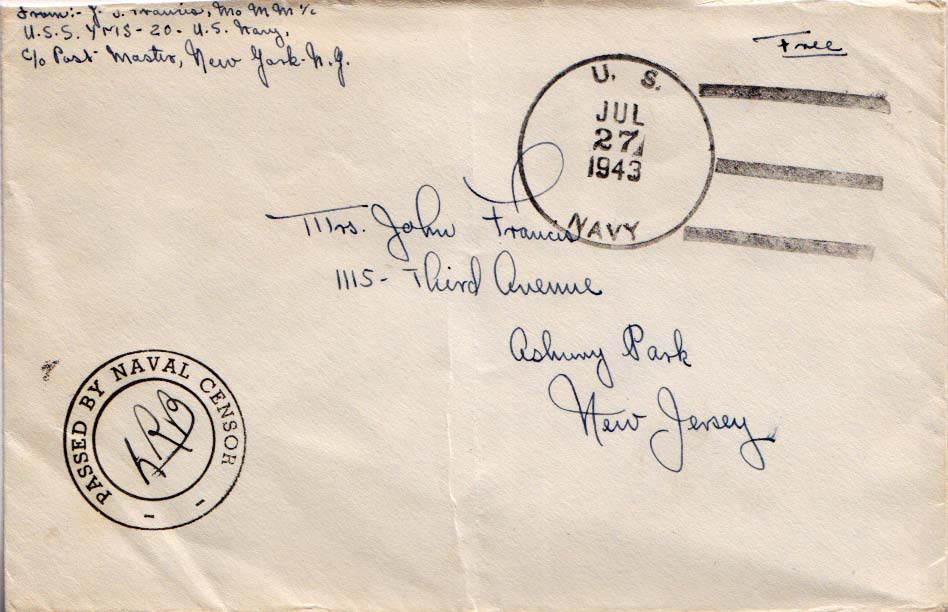 From:- J. J. Francis, Mo M M 1/c
U.S.S. YMS-20 - U.S. Navy,
c/o Post Master, New York - N.Y.
Free
U. S.
JUL
27
1943
NAVY
Mrs. John Francis
1115 - Third Avenue
Asbury Park
New Jersey
PASSED BY NAVAL CENSOR